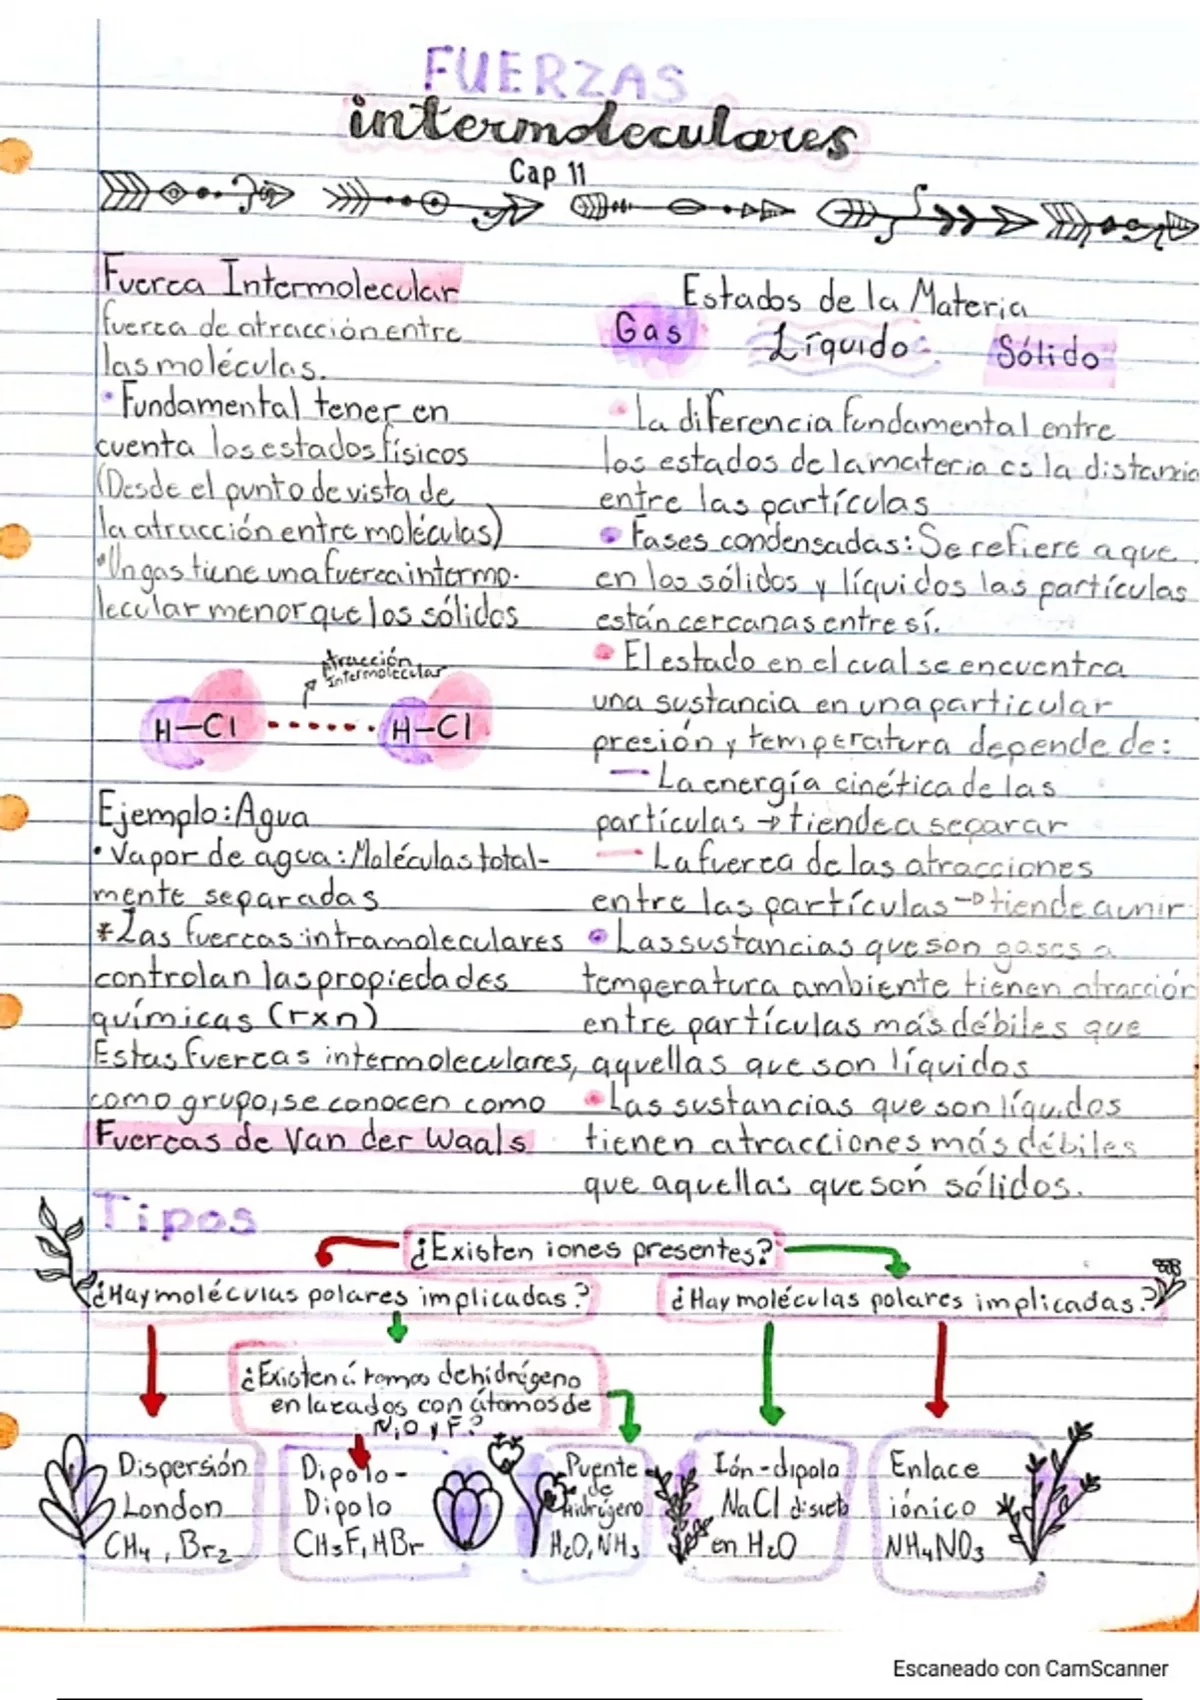 FUERZAS
intermoleculares
Cap 11
Fuerza Intermolecular
fuerza de atracción entre
las moléculas.
• Fundamental tener en
cuenta los estados físicos
(Desde el punto de vista de
la atracción entre moléculas)
• Un gas tiene una fuerza intermo-
lecular menor que los sólidos
Atracción
Intermolecular
H-Cl ....... H-Cl
Ejemplo: Agua
• Vapor de agua: Moléculas total-
mente separadas
* Las fuerzas intramoleculares
controlan las propiedades
químicas (rxn)
Estas fuerzas intermoleculares,
como grupo, se conocen como
Fuerzas de Van der Waals
Estados de la Materia
Gas Líquido Sólido
• La diferencia fundamental entre
los estados de la materia es la distancia
entre las partículas
• Fases condensadas: Se refiere a que
en los sólidos y líquidos las partículas
están cercanas entre sí.
• El estado en el cual se encuentra
una sustancia en una particular
presión y temperatura depende de:
— La energía cinética de las
partículas → tiende a separar
— La fuerza de las atracciones
entre las partículas → tiende a unir
• Las sustancias que son gases a
temperatura ambiente tienen atracción
entre partículas más débiles que
aquellas que son líquidos
• Las sustancias que son líquidos
tienen atracciones más débiles
que aquellas que son sólidos.
Tipos
¿Existen iones presentes?
¿Hay moléculas polares implicadas?
¿Hay moléculas polares implicadas?
¿Existen átomos de hidrógeno
enlazados con átomos de
N, O y F?
Dispersión
London
CH4, Br2
Dipolo-
Dipolo
CH3F, HBr
Puente
de
Hidrógeno
H2O, NH3
Ión-dipolo
NaCl disuelto
en H2O
Enlace
iónico
NH4NO3
Escaneado con CamScanner